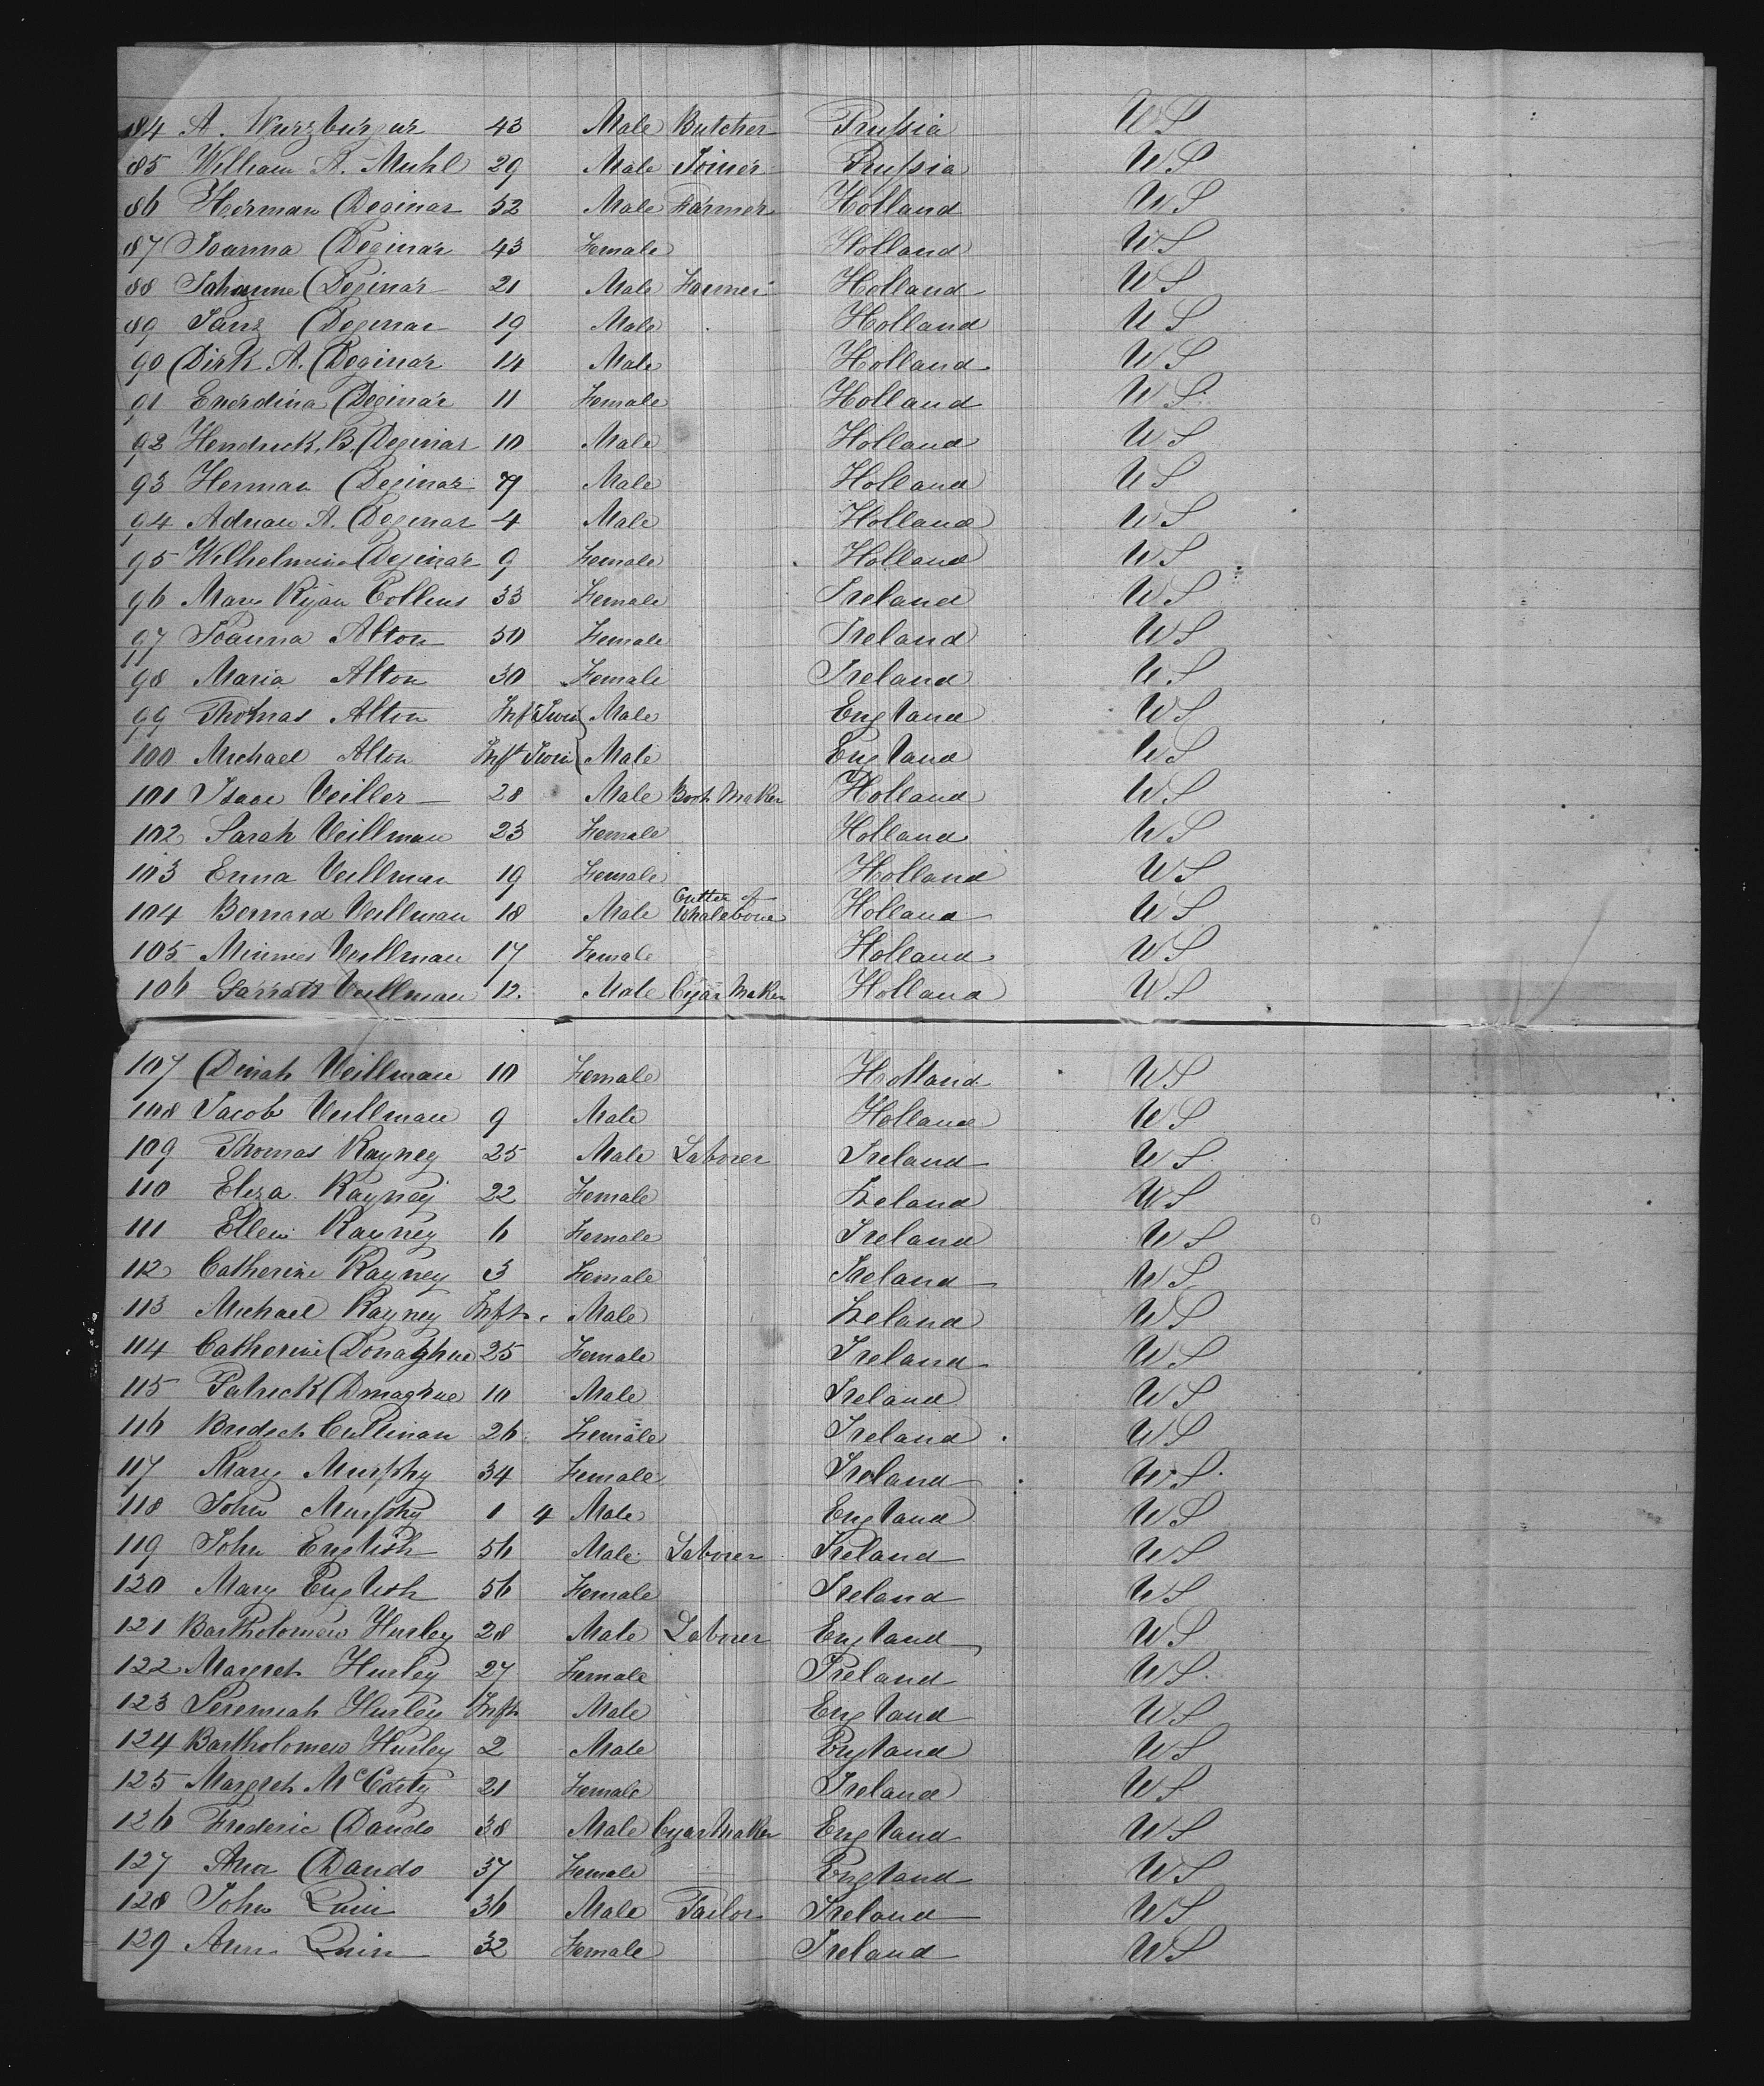 84 A. Wurzburger 43 Male Butcher Prussia US
85 William A. Muhl 29 Male Joiner Prussia US
86 Herman Deginar 52 Male Farmer Holland US
87 Joanna Deginar 43 Female Holland US
88 Johanne Deginar 21 Male Farmer Holland US
89 Deginar 19 Male Holland US
90 Dirk A. Deginar 14 Male Holland US
91 Everdina Deginar 11 Female Holland US
92 Hendrick. B. Deginar 10 Male Holland US
93 Herman Deginar 7 Male Holland US
94 Adrian A. Deginar 4 Male Holland US
95 Wilhelmina Deginar 9 Female Holland US
96 Mary Ryan Collins 33 Female Ireland US
97 Joanna Alton 50 Female Ireland US
98 Maria Alton 30 Female Ireland US
99 Thomas Alton Inft Twin Male England US
100 Michael Alton Inft Twin Male England US
101 Isaac Veiller 28 Male Boot Maker Holland US
102 Sarah Veillman 23 Female Holland US
103 Emma Veillman 19 Female Holland US
104 Bernard Veillman 18 Male Cutter of Whalebone Holland US
105 Minnes Veillman 17 Female Holland US
106 Garratt Veillman 12. Male Cigar Maker Holland US
107 Dinah Veillman 10 Female Holland US
108 Jacob Veillman 9 Male Holland US
109 Thomas Rayney 25 Male Laborer Ireland US
110 Eliza Rayney 22 Female Ireland US
111 Ellen Rayney 6 Female Ireland US
112 Catherine Rayney 3 Female Ireland US
113 Michael Rayney Inft. Male Ireland US
114 Catherine Donaghue 25 Female Ireland US
115 Patrick Donaghue 10 Male Ireland US
116 Bridget Cullinan 26 Female Ireland US
117 Mary Murphy 34 Female Ireland US
118 John Murphy 1 4 Male England US
119 John English 56 Male Laborer Ireland US
120 Mary English 56 Female Ireland US
121 Bartholomew Hurley 28 Male Laborer England US
122 Margret Hurley 27 Female Ireland US
123 Jeremiah Hurley Inft Male England US
124 Bartholomew Hurley 2 Male England US
125 Margret McCarty 21 Female Ireland US
126 Frederic Dando 38 Male Cigar Maker England US
127 Ann Dando 37 Female England US
128 John Quin 36 Male Tailor Ireland US
129 Ann Quin 32 Female Ireland US